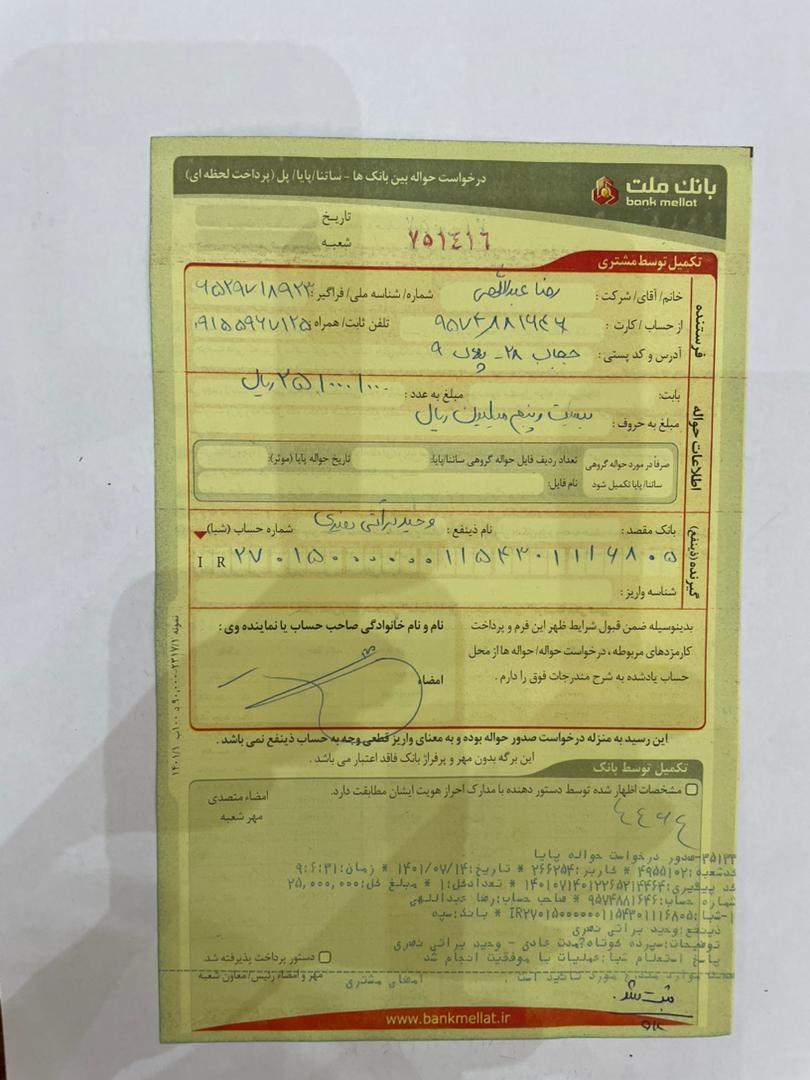 بانك ملت
bank mellat
درخواست حواله بین بانک ها - ساتنا/پایا/ پل (پرداخت لحظه ای)
تاریخ
شعبه
۷۵۱٤۱٦
تکمیل توسط مشتری
فرستنده
خانم/ آقای/ شرکت: رضا عبدالهی شماره/ شناسه ملی/ فراگیر:
از حساب / کارت: ۹۵۷۴۸۸۱۶۴۶ تلفن ثابت/ همراه: ۰۹۱۵۵۹۶۷۱۲۵
آدرس و کد پستی: حجاب ۲۸ - ۹
اطلاعات حواله
بابت: مبلغ به عدد: ۲۵/۰۰۰/۰۰۰ ریال
مبلغ به حروف: بیست و پنج میلیون ریال
صرفاً در مورد حواله گروهی ساتنا/ پایا تکمیل شود
تعداد ردیف فایل حواله گروهی ساتنا/پایا: تاریخ حواله پایا (موثر):
نام فایل:
گیرنده (ذینفع)
بانک مقصد: نام ذینفع: وحید براتی نصری شماره حساب (شبا)
IR ۲۷۰۱۵۰۰۰۰۰۰۰۱۱۵۴۳۰۱۱۱۶۸۰۵
شناسه واریز:
بدینوسیله ضمن قبول شرایط ظهر این فرم و پرداخت
کارمزدهای مربوطه، درخواست حواله/ حواله ها از محل
حساب یادشده به شرح مندرجات فوق را دارم.
نام و نام خانوادگی صاحب حساب یا نماینده وی:
امضاء
این رسید به منزله درخواست صدور حواله بوده و به معنای واریز قطعی وجه به حساب ذینفع نمی باشد.
این برگه بدون مهر و پرفراژ بانک فاقد اعتبار می باشد.
تکمیل توسط بانک
مشخصات اظهار شده توسط دستور دهنده با مدارک احراز هویت ایشان مطابقت دارد.
امضاء متصدی
مهر شعبه
۳۵۱۳۳-صدور درخواست حواله پایا
کدشعبه:۴۹۵۵۱۰۲ * کاربر:۲۶۶۲۵۴ * تاریخ:۱۴۰۱/۰۷/۱۴ * زمان:۹:۶:۳۱
کد پیگیری:۱۴۰۱۰۷۱۴۰۱۲۲۶۵۲۱۴۴۶۴ * تعدادکل:۱ * مبلغ کل:۲۵,۰۰۰,۰۰۰
شماره حساب:۹۵۷۴۸۸۱۶۴۶ * صاحب حساب:رضا عبداللهی
۱-شبا:IR۲۷۰۱۵۰۰۰۰۰۰۰۱۱۵۴۳۰۱۱۱۶۸۰۵ * بانک:سپه
ذینفع:وحید براتی نصری
توضیحات:سپرده کوتاه?مدت عادی - وحید براتی نصری
پاسخ استعلام شبا:عملیات با موفقیت انجام شد
امضای مشتری
دستور پرداخت پذیرفته شد
مهر و امضاء رئیس/ معاون شعبه
ثبت شد.
www.bankmellat.ir